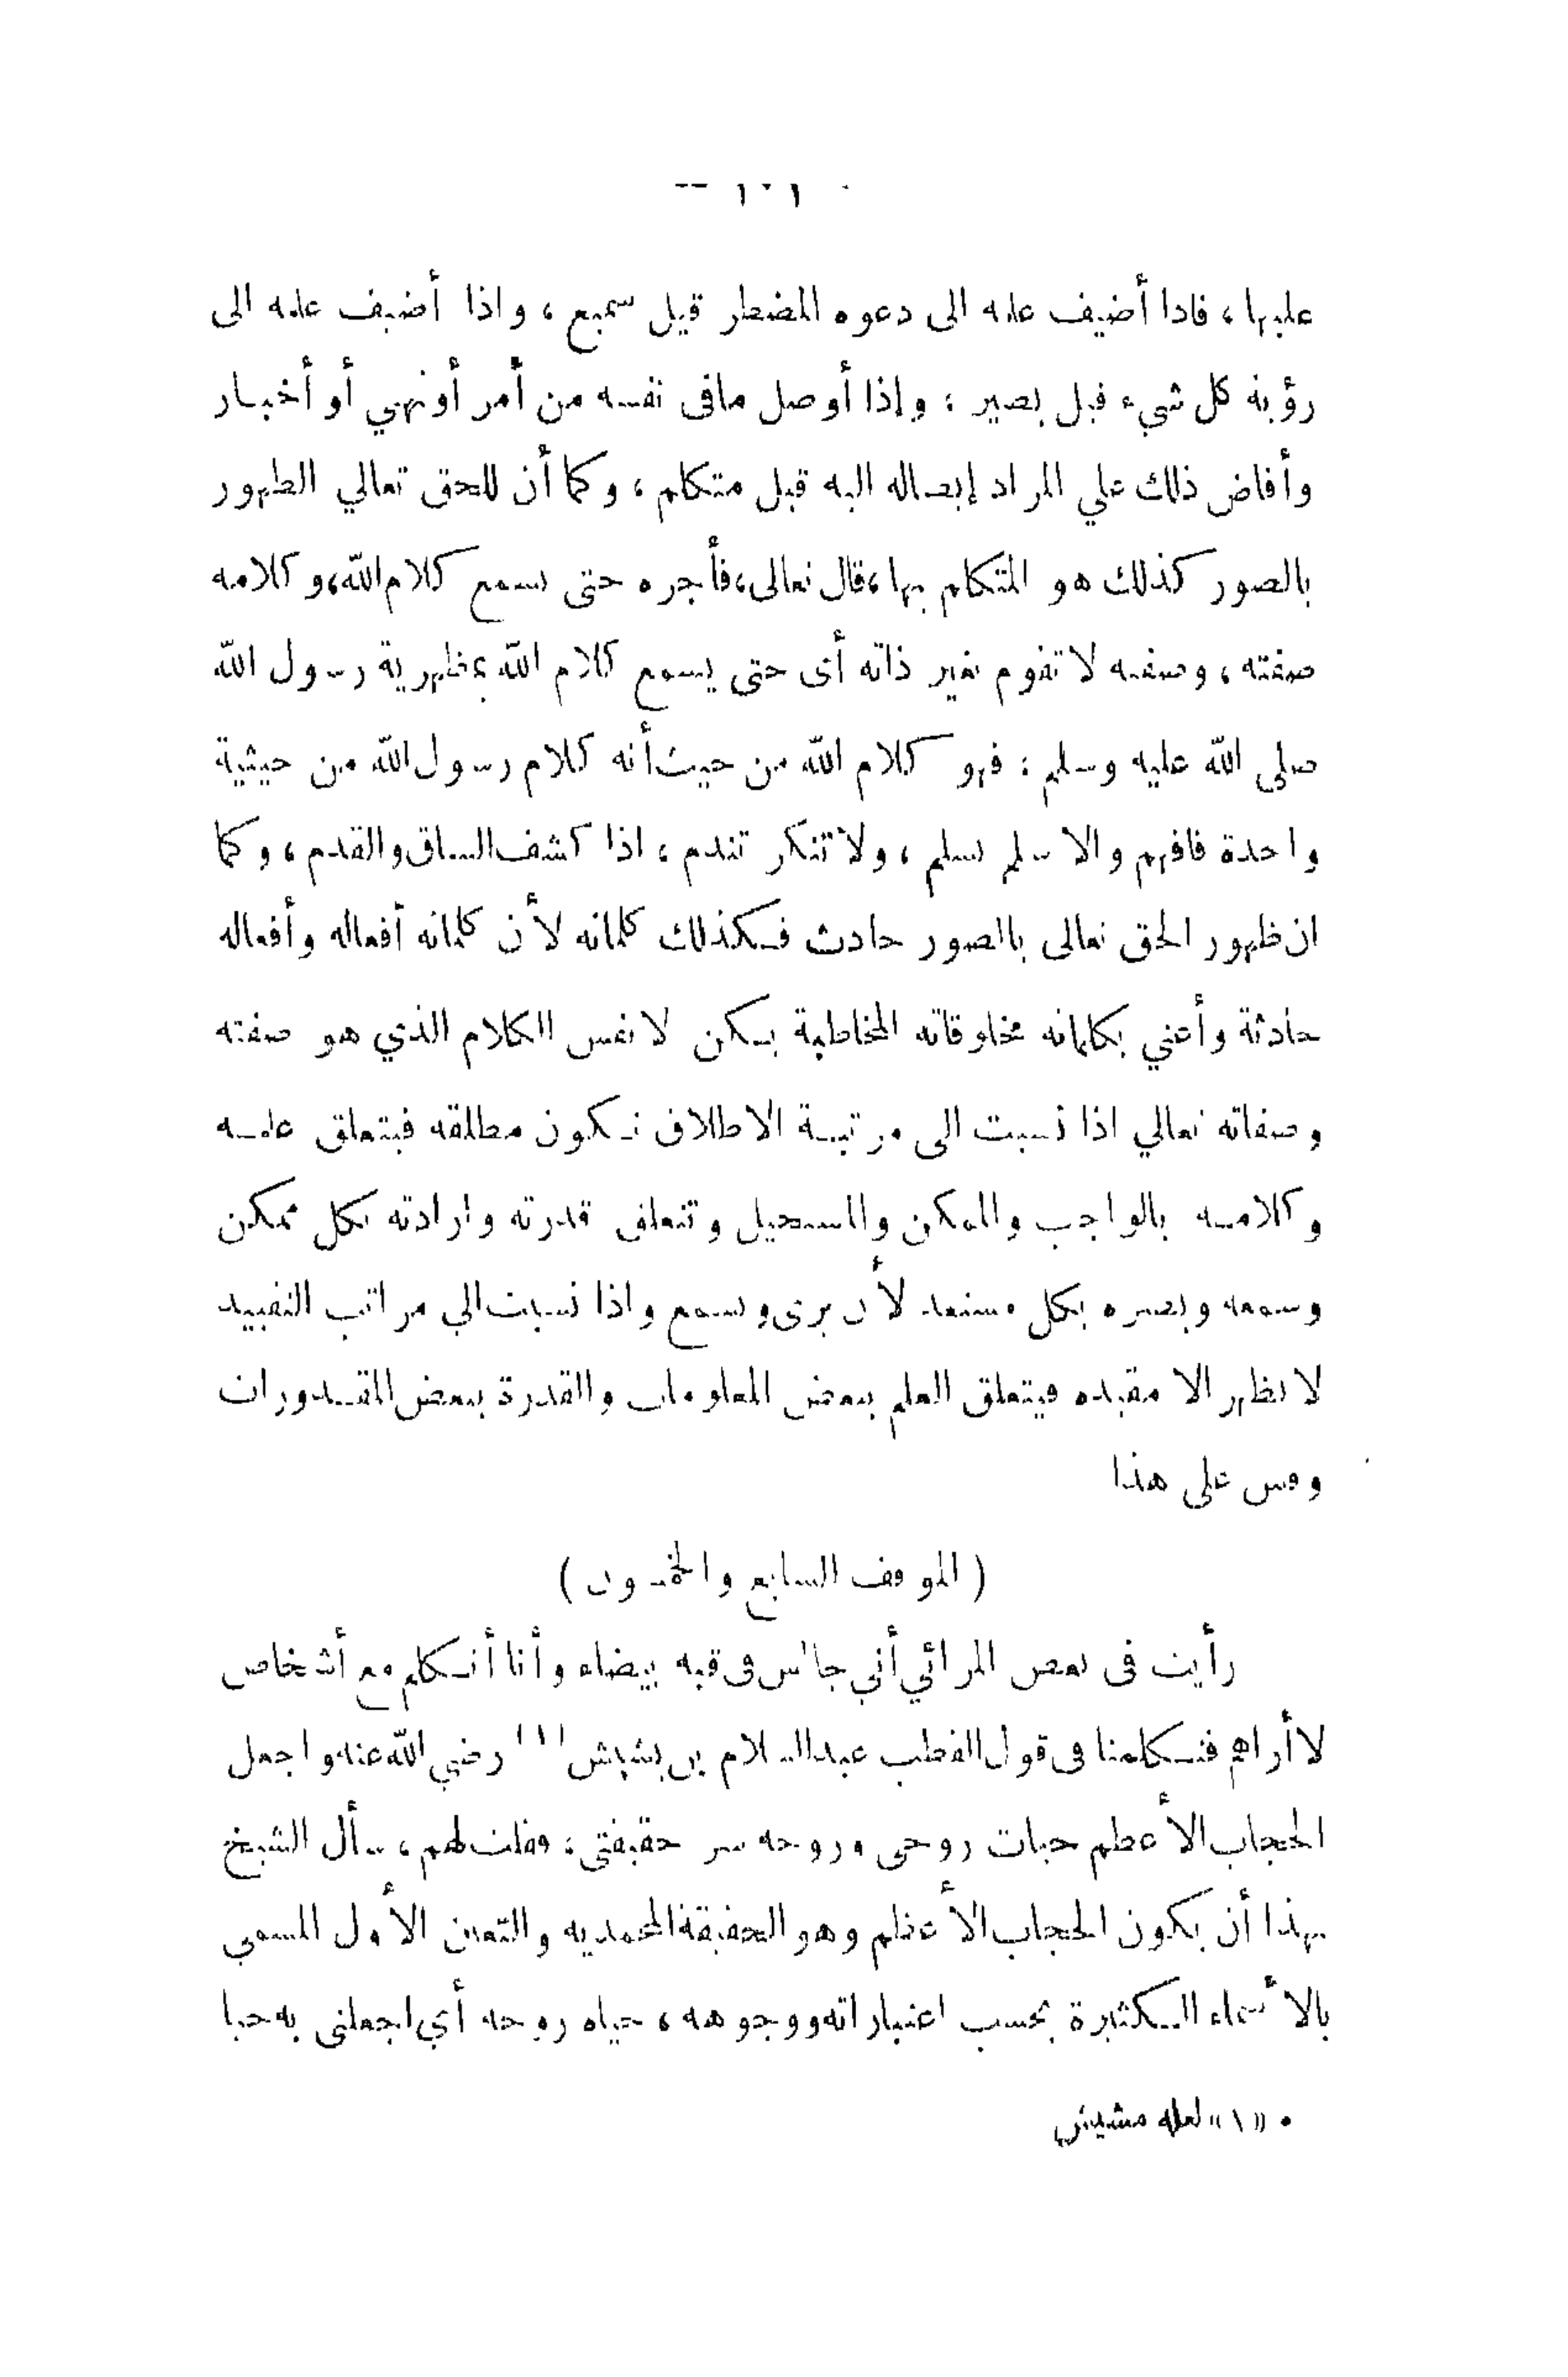 — ١٠١ —
عليها، فاذا أضيف علمه الى دعوة المضطر قيل سميع، واذا أضيف علمه الى
رؤية كل شيء قيل بصير؛ وإذا أوصل مافى نفسه من أمر أونهي أو أخبار
وأفاض ذلك علي المراد إيصاله اليه قيل متكلم، وكما أن للحق تعالي الظهور
بالصور كذلك هو المتكلم بها،قال تعالى،فأجره حتى يسمع كلام الله،وكلامه
صفته، وصفته لا تقوم بغير ذاته أى حتى يسمع كلام الله بمظهرية رسول الله
صلى الله عليه وسلم؛ فهو كلام الله من حيث أنه كلام رسول الله من حيثية
واحدة فافهم والا سلم تسلم، ولا تنكر تندم، اذا كشف الساق والقدم، وكما
ان ظهور الحق تعالى بالصور حادث فكذلك كلماته لأن كلماته أفعاله وأفعاله
حادثة وأعني بكلماته مخلوقاته المخاطبة بكن لا نفس الكلام الذي هو صفته
وصفاته تعالي اذا نسبت الى مرتبة الاطلاق تكون مطلقه فيتعلق علمه
وكلامه بالواجب والممكن والمستحيل وتتعلق قدرته وارادته بكل ممكن
وسمعه وبصره بكل مستعد لأن يرى ويسمع واذا نسبت الي مراتب التقييد
لا تظهر الا مقيده فيتعلق العلم ببعض المعلومات والقدرة ببعض المقدورات
وقس على هذا
( الموقف السابع والخمسون )
رأيت فى بعض المرائي أني جالس فى قبه بيضاء وأنا أتكلم مع أشخاص
لا أراهم فتكلمنا فى قول القطب عبدالسلام بن بشيش «١» رضي الله عنه واجعل
الحجاب الأعظم حيات روحى وروحه سر حقيقتى؛ فقلت لهم، سأل الشيخ
بهذا أن يكون الحجاب الأعظم وهو الحقيقة المحمديه والتعين الأول المسمي
بالأسماء الكثيرة بحسب اعتباراته ووجوهه، حياه روحه أي اجعلنى به حيا
• «١» لعله مشيش